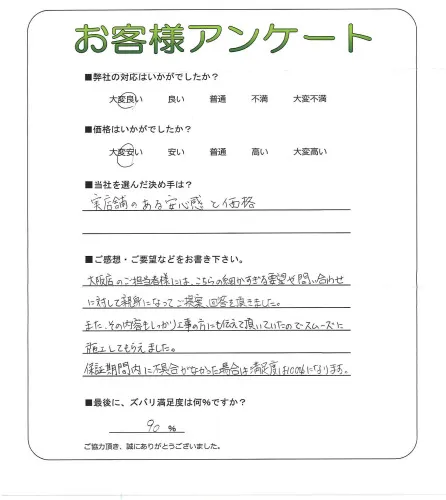 お客様アンケート
■弊社の対応はいかがでしたか？
大変良い 良い 普通 不満 大変不満
■価格はいかがでしたか？
大変安い 安い 普通 高い 大変高い
■当社を選んだ決め手は？
実店舗のある安心感と価格
■ご感想・ご要望などをお書き下さい。
大阪店のご担当者様には、こちらの細かすぎる要望や問い合わせ
に対して親身になってご提案、回答を頂きました。
また、その内容もしっかり工事の方にも伝えて頂いていたのでスムーズに
施工してもらえました。
保証期間内に不具合がなかった場合は満足度は100%になります。
■最後に、ズバリ満足度は何%ですか？
90 %
ご協力頂き、誠にありがとうございました。